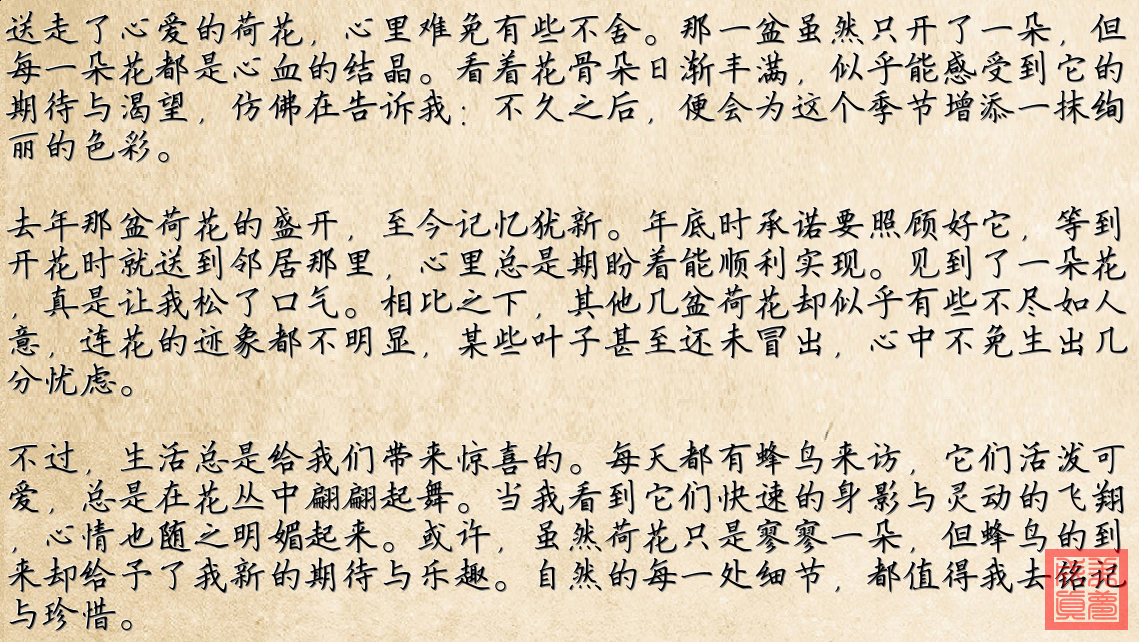 送走了心爱的荷花，心里难免有些不舍。那一盆虽然只开了一朵，但
每一朵花都是心血的结晶。看着花骨朵日渐丰满，似乎能感受到它的
期待与渴望，仿佛在告诉我：不久之后，便会为这个季节增添一抹绚
丽的色彩。
去年那盆荷花的盛开，至今记忆犹新。年底时承诺要照顾好它，等到
开花时就送到邻居那里，心里总是期盼着能顺利实现。见到了一朵花
，真是让我松了口气。相比之下，其他几盆荷花却似乎有些不尽如人
意，连花的迹象都不明显，某些叶子甚至还未冒出，心中不免生出几
分忧虑。
不过，生活总是给我们带来惊喜的。每天都有蜂鸟来访，它们活泼可
爱，总是在花丛中翩翩起舞。当我看到它们快速的身影与灵动的飞翔
，心情也随之明媚起来。或许，虽然荷花只是寥寥一朵，但蜂鸟的到
来却给予了我新的期待与乐趣。自然的每一处细节，都值得我去铭记
与珍惜。